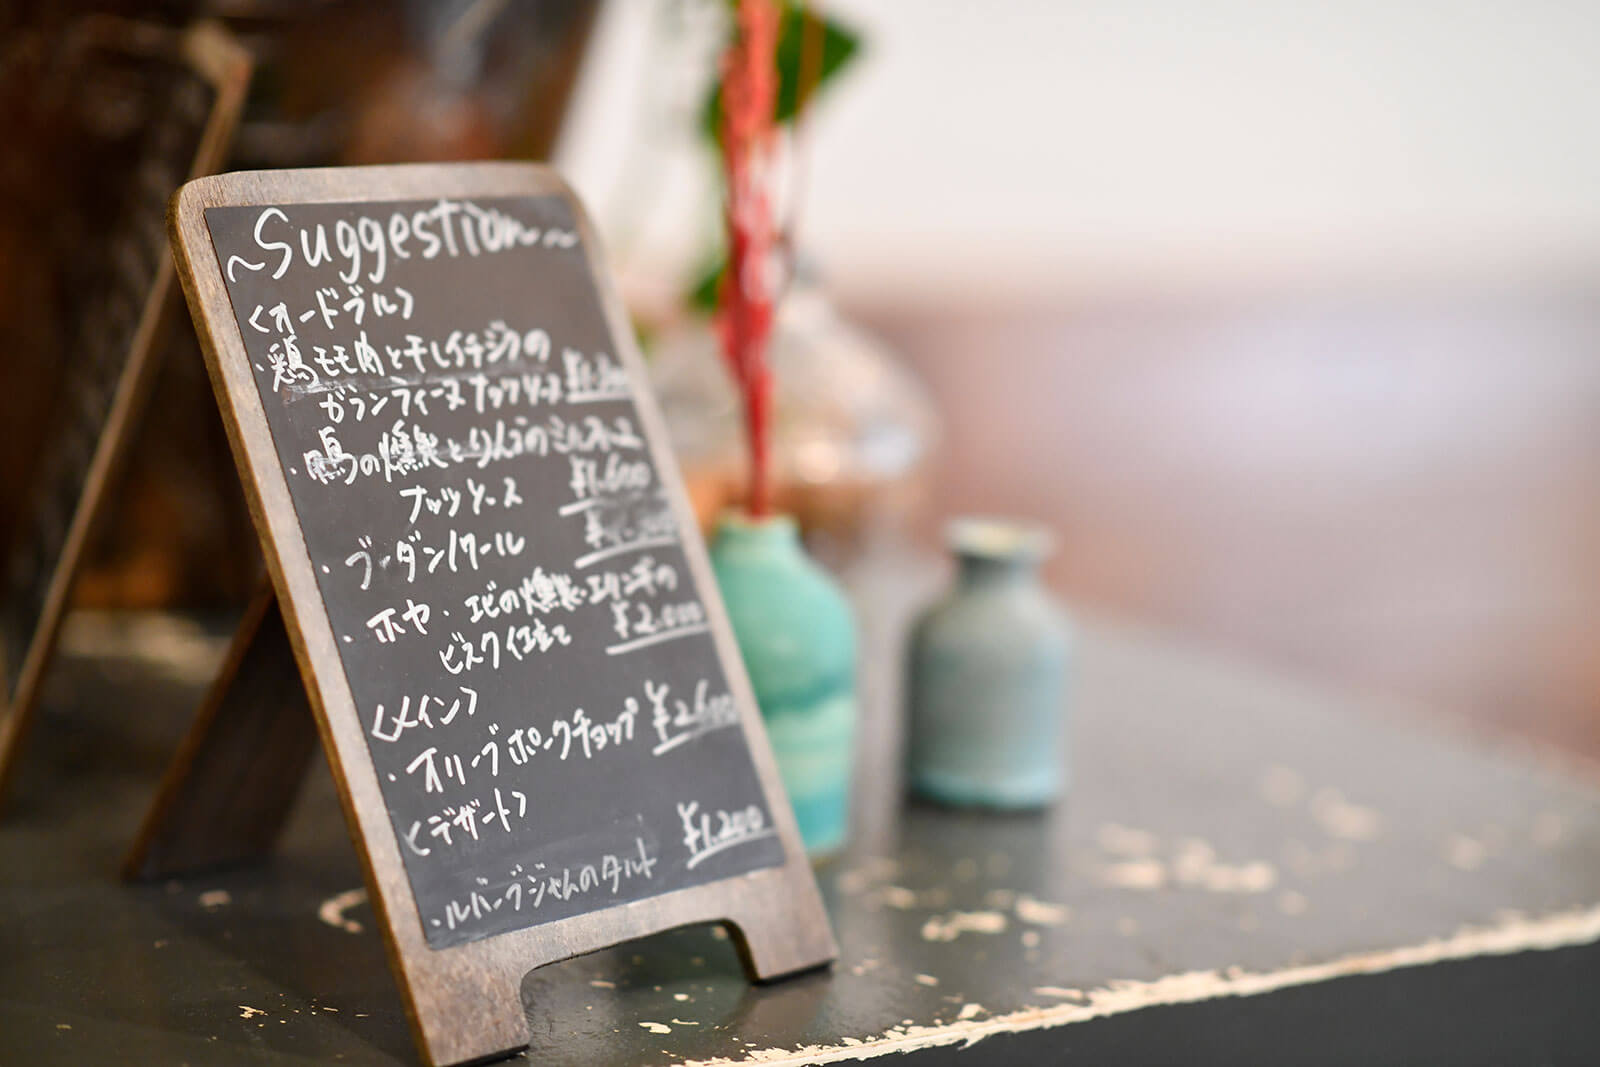 ~Suggestion~
<オードブル>
・鶏モモ肉と干しイチジクの
ガランティーヌ ナッツソース
・鴨の燻製とりんごのミルフィーユ
ナッツソース ¥1.600
・ブーダンノワール
・ホヤ・エビの燻製・エリンギの
ビスク仕立て ¥2.000
<メイン>
・オリーブポークチョップ ¥2.600
<デザート>
・ルバーブジャムのタルト ¥1.200